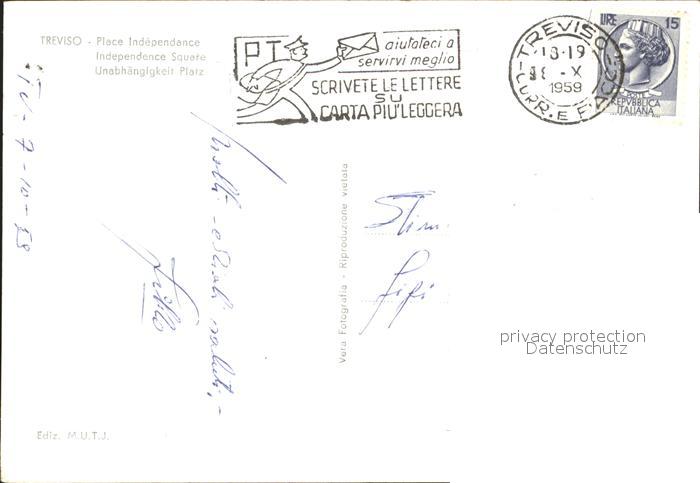 TREVISO - Place Indépendance
Independence Square
Unabhängigkeit Platz
P.T.
aiutateci a
servirvi meglio
SCRIVETE LE LETTERE
SU
CARTA PIU' LEGGERA
TREVISO
18-19
-X
1959
CORR. E PACCHI
LIRE 15
POSTE
REPVBBLICA
ITALIANA
TV-7-10-59
Molti e saluti,-
Vera Fotografia - Riproduzione vietata
Fifi
privacy protection
Datenschutz
Ediz. M.U.T.J.